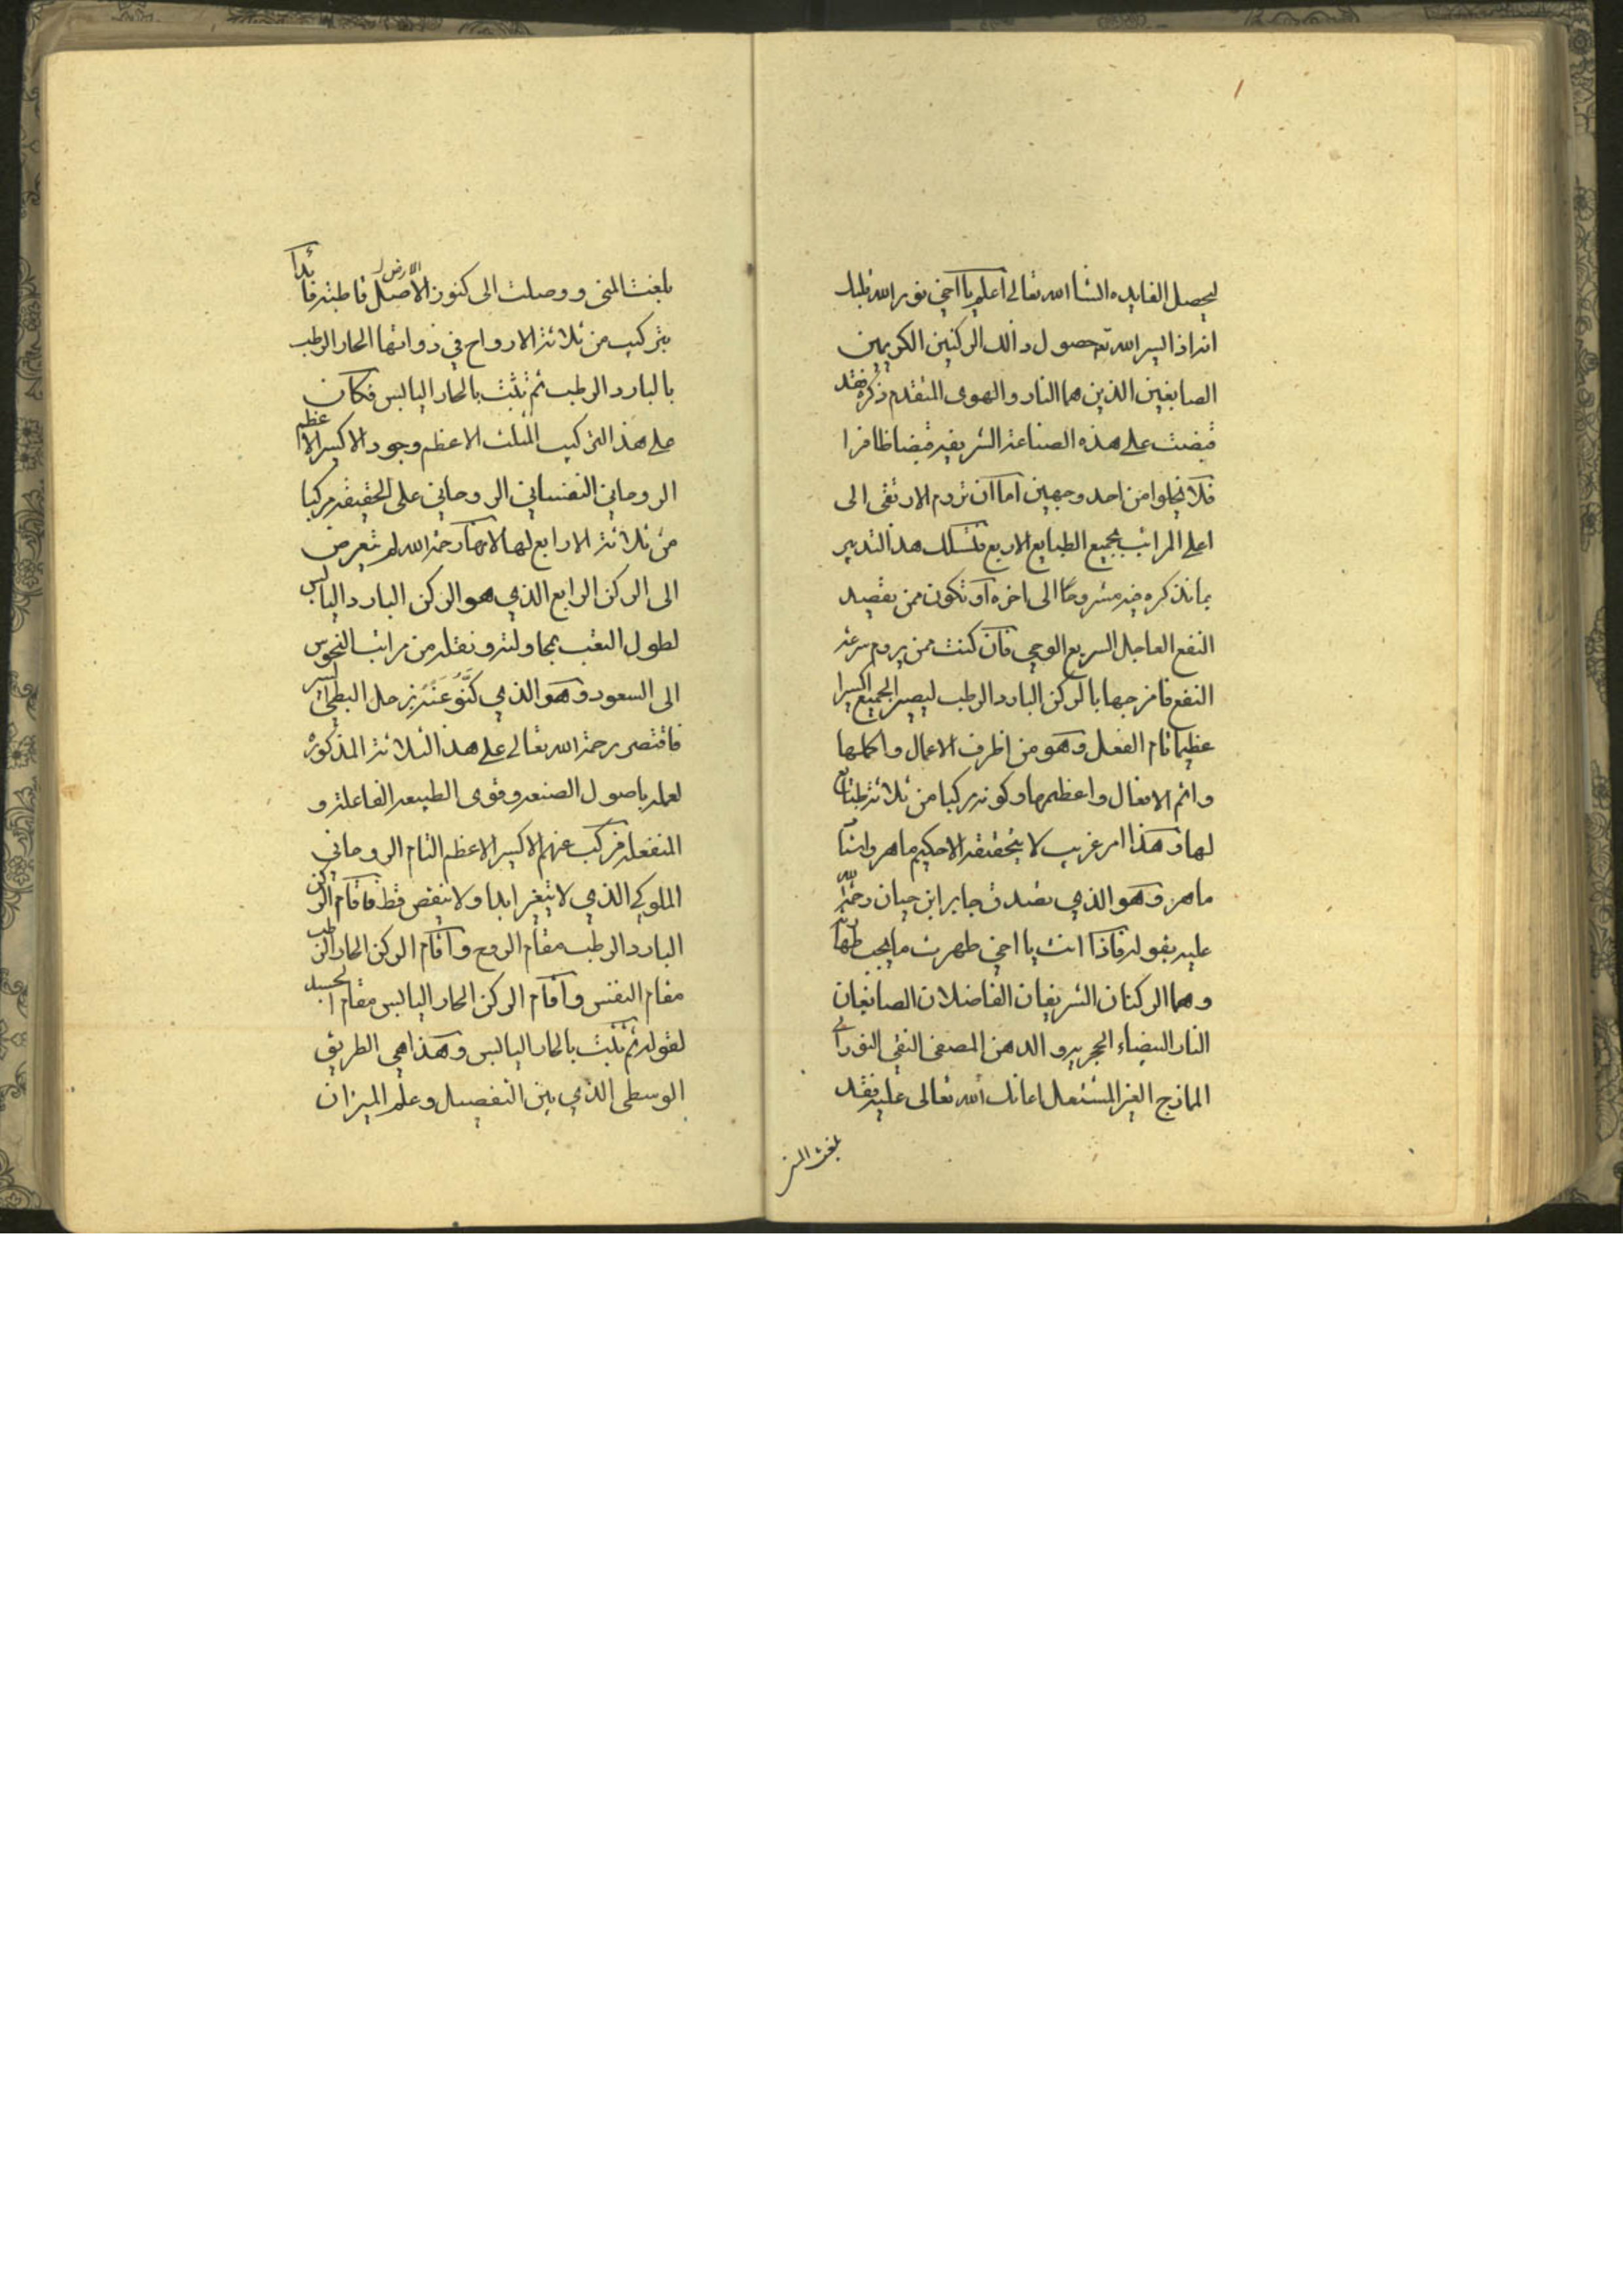 ليحصل الفايده انشا الله تعالى اعلم يا اخي نور الله قلبك
انه اذا يسر الله تع حصول ذالك الركنين الكريمين
الصابغين الذين هما النار والهوى المتقدم ذكره فقد
قبضت على هذه الصناعة الشريفه قبضا ظافرا
فلا يخلوا من احد وجهين اما ان تروم الارتقى الى
اعلى المراتب بجميع الطبايع الاربع فتسلك هذا التدبير
بما نذكره فيه مشروحًا الى اخره او تكون ممن يقصد
النفع العاجل السريع الوحي فان كنت ممن يروم سرعة
النفع فامزجها بالركن البارد الرطب ليصير الجميع اكسيرا
عظيما تام الفعل وهو من اظرف الاعمال واكملها
واتم الافعال واعظمها وكونه مركبا من ثلاثة
لها وهذا امر غريب لا يتحققه الا حكيم ماهر
ماهر وهو الذي تصدق جابر ابن حيان رحمة الله
عليه بقوله فاذا انت يا اخي طهرت ما يجب
وهما الركنان الشريفان الفاضلان الصابغان
النار البيضاء الحجريه والدهن المصفى النقي النوراني
المازج الغير المشتعل اعانك الله تعالى عليه فقد
بلغت المنى
بلغت المنى ووصلت الى كنوز الارض
بتركيب من ثلاثة الارواح في ذواتها الحار الرطب
بالبارد الرطب ثم تثبت بالحار اليابس فكان
على هذا التركيب المثلث الاعظم وجود الاكسير الاعظم
الروحاني النفساني الروحاني على الحقيقه مركبا
من ثلاثة لا رابع لها لانها رحمة الله لم يتعرض
الى الركن الرابع الذي هو الركن البارد اليابس
لطول التعب بمحاولته ونقله من مراتب النحوس
الى السعود وهو الذي كنَّو عَنْهُ بزحل البطئ السير
فاقتصر رحمة الله تعالى على هذا الثلاثة المذكوره
لعلمه باصول الصنعه وقوى الطبيعه الفاعلة و
المنفعله فركب عنهم الاكسير الاعظم التام الروحاني
الملوكي الذي لا يتغير ابدا ولا ينقص قط فاقام الركن
البارد الرطب مقام الروح واقام الركن الحار الرطب
مقام النفس واقام الركن الحار اليابس مقام الجسد
لقوله ثم تثبت بالحار اليابس وهذا هي الطريق
الوسطى الذي بين التفصيل وعلم الميزان